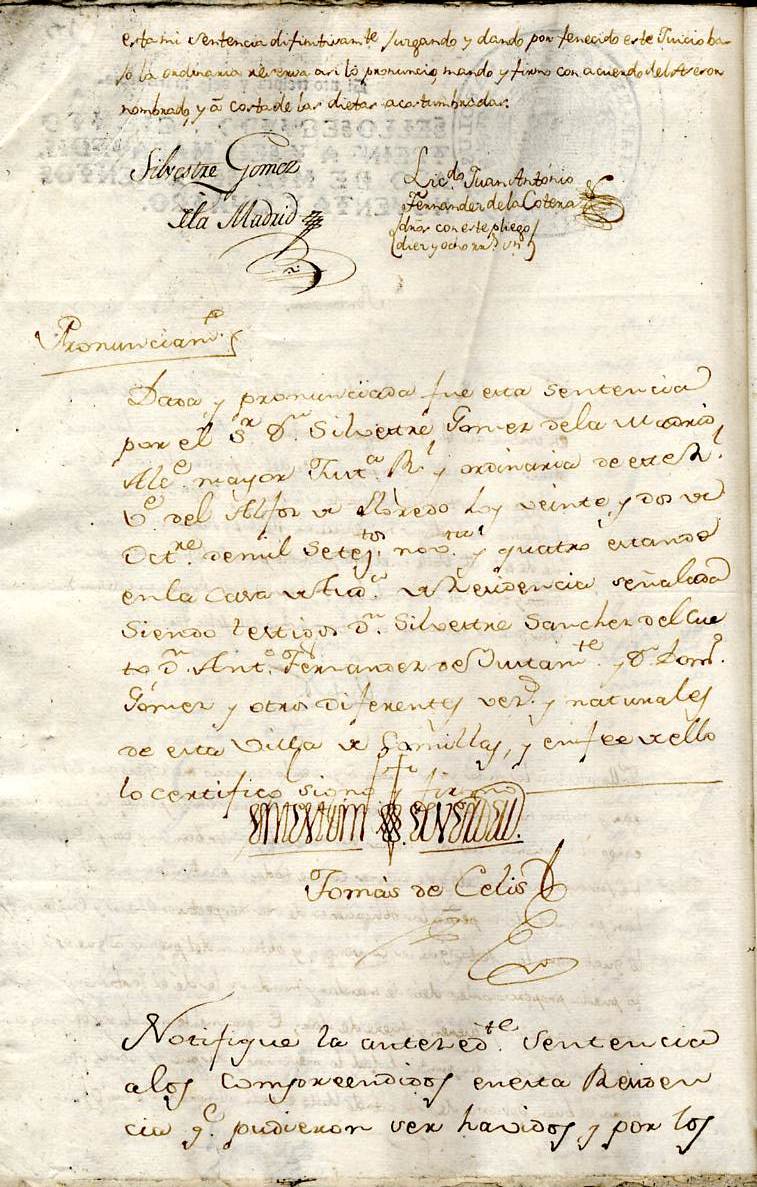 esta mi sentencia difinitivamte. juzgando y dando por fenecido este Juicio ba-
jo la ordinaria reserva asi lo pronuncio, mando y firmo con acuerdo del Asesor
nombrado, y â costa de las dietas acostumbradas.
Silvestre Gomez
dla Madrid
Licdo. Juan António
Fernandez de la Cotera
dros con este pliego
diez y ocho rrs. vn
Pronunciamto.
Dada y pronunciada fue esta sentencia
por el Sr. Dn. Silvestre Gomez de la Madrid
Alce. mayor Justa. Rl. y ordinaria de este Rl.
Ve. del Alfoz de Lloredo hoy veinte y dos de
Octre. de mil setetos. novta. y quatro estando
en la casa de Auda. de Residencia señalada
siendo testigos Dn. Silvestre Sanchez del Cue
to Dn. Anto. Fernandez de Bustamte. y Dn. Domo.
Gómez y otros diferentes vezs. y naturales
de esta Villa de Comillas, y en fee de ello
lo certifico signo y firmo
en testim de verdad.
Tomás de Celis
Notifique la antezedte. sentencia
a los compreendidos en esta Residen
cia qe. pudieron ser havidos y por los